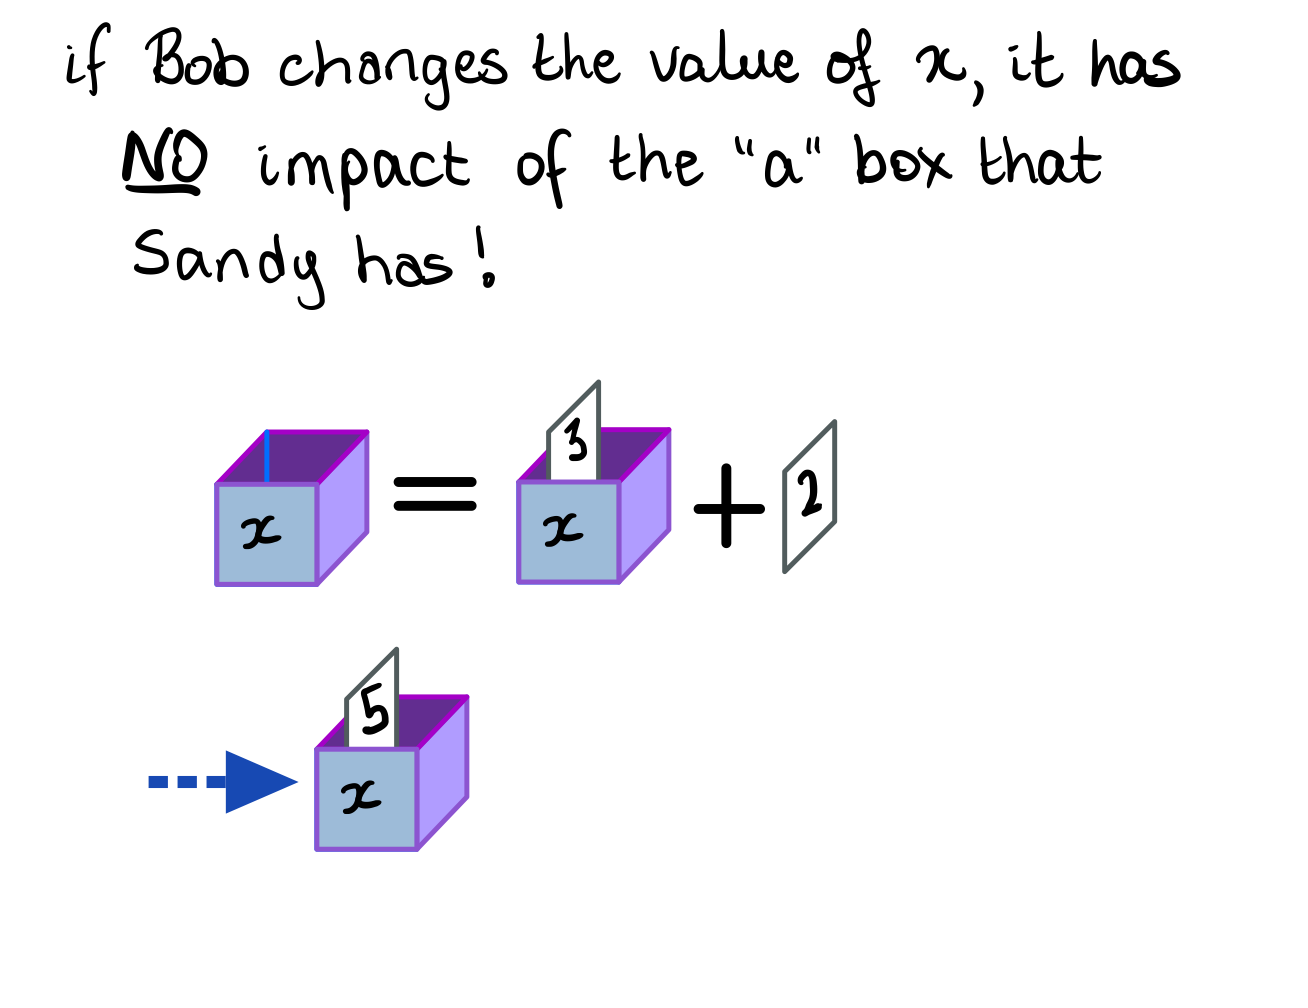 if Bob changes the value of x, it has
NO impact of the "a" box that
Sandy has!
x = 3 x + 2
5
x